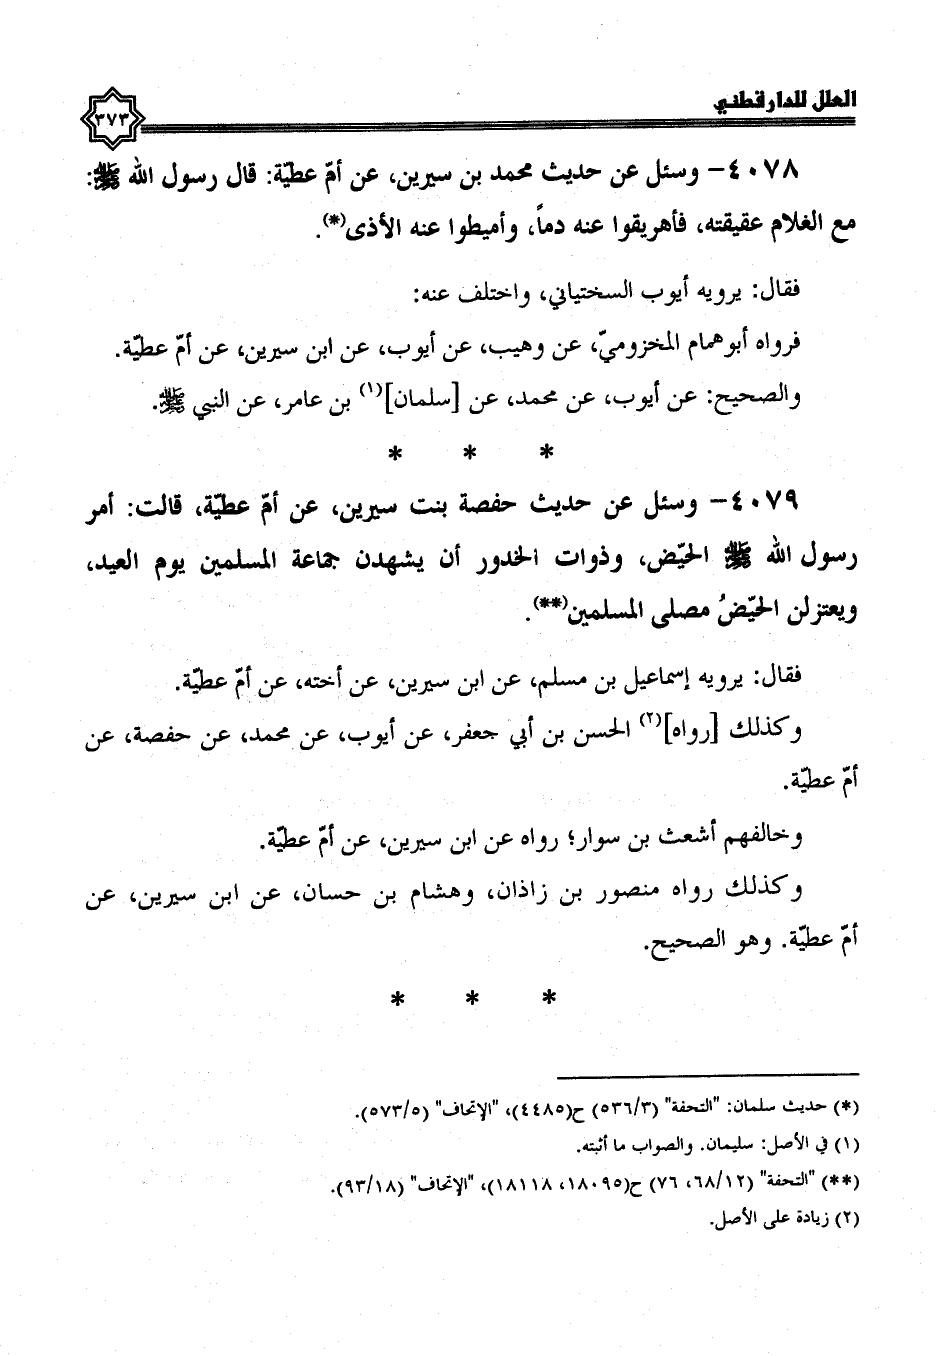 العلل للدارقطني
٣٧٣
٤٠٧٨– وسئل عن حديث محمد بن سيرين، عن أمّ عطيّة: قال رسول الله ﷺ:
مع الغلام عقيقته، فأهريقوا عنه دماً، وأميطوا عنه الأذى(*).
فقال: يرويه أيوب السختياني، واختلف عنه:
فرواه أبوهمام المخزوميّ، عن وهيب، عن أيوب، عن ابن سيرين، عن أمّ عطيّة.
والصحيح: عن أيوب، عن محمد، عن [سلمان](١) بن عامر، عن النبي ﷺ.
* * *
٤٠٧٩– وسئل عن حديث حفصة بنت سيرين، عن أمّ عطيّة، قالت: أمر
رسول الله ﷺ الحيّض، وذوات الخدور أن يشهدن جماعة المسلمين يوم العيد،
ويعتزلن الحيّضُ مصلى المسلمين(**).
فقال: يرويه إسماعيل بن مسلم، عن ابن سيرين، عن أخته، عن أمّ عطيّة.
وكذلك [رواه](٢) الحسن بن أبي جعفر، عن أيوب، عن محمد، عن حفصة، عن
أمّ عطيّة.
وخالفهم أشعث بن سوار؛ رواه عن ابن سيرين، عن أمّ عطيّة.
وكذلك رواه منصور بن زاذان، وهشام بن حسان، عن ابن سيرين، عن
أمّ عطيّة. وهو الصحيح.
* * *
(*) حديث سلمان: "التحفة" (٥٣٦/٣) ح(٤٤٨٥)، "الإتحاف" (٥٧٣/٥).
(١) في الأصل: سليمان. والصواب ما أثبته.
(**) "التحفة" (٦٨/١٢، ٧٦) ح(١٨٠٩٥، ١٨١١٨)، "الإتحاف" (٩٣/١٨).
(٢) زيادة على الأصل.